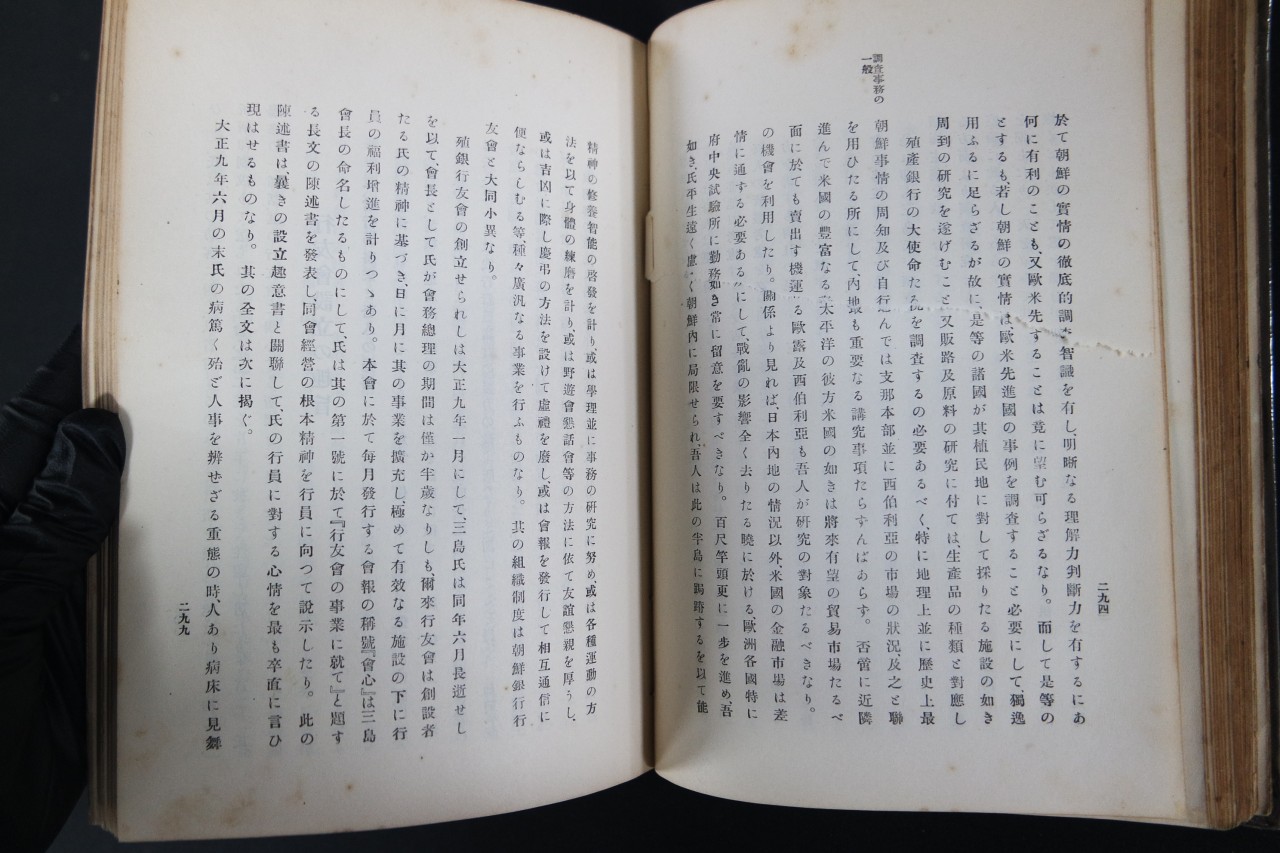 二九四
於て朝鮮の實情の徹底的調査智識を有し、明晰なる理解力判斷力を有するにあ
何に有利のことも、又歐米先することは竟に望む可らざるなり。而して是等の
とするも、若し朝鮮の實情は、歐米先進國の事例を調査すること必要にして、獨逸
用ふるに足らざるが故に、是等の諸國が其植民地に對して採りたる施設の如き
周到の研究を遂げむこと、又販路及原料の研究に付ては、生產品の種類と對應し
殖產銀行の大使命たる を調査するの必要あるべく、特に地理上並に歷史上最
調査事務の
一般
朝鮮事情の周知及び自行 んでは支那本部並に西伯利亞の市場の狀況、及之と聯
を用ひたる所にして、內地最も重要なる講究事項たらずんばあらず。否啻に近隣
進んで米國の豐富なる 太平洋の彼方米國の如きは將來有望の貿易市場たるべ
面に於ても賣出す機運 る歐露及西伯利亞も吾人が研究の對象たるべきなり。
の機會を利用したり。關係より見れば、日本內地の情況以外、米國の金融市場は差
情に通ずる必要ある にして、戰亂の影響全く去りたる曉に於ける、歐洲各國特に
府中央試驗所に勤務 如き常に留意を要すべきなり。百尺竿頭更に一步を進め、吾
如き、氏平生遠く慮 く朝鮮內に局限せられ、吾人は此の半島に跼蹐するを以て能
精神の修養智能の啓發を計り、或は學理並に事務の硏究に努め、或は各種運動の方
法を以て身體の練磨を計り、或は野遊會懇話會等の方法に依て友誼懇親を厚うし、
或は吉凶に際し慶弔の方法を設けて虛禮を廢し、或は會報を發行して相互通信に
便ならしむる等、種々廣汎なる事業を行ふものなり。其の組織制度は朝鮮銀行行
友會と大同小異なり。
殖銀行友會の創立せられしは大正九年一月にして、三島氏は同年六月長逝せし
を以て、會長として氏が會務總理の期間は僅か半歲なりしも、爾來行友會は創設者
たる氏の精神に基づき、日に月に其の事業を擴充し、極めて有效なる施設の下に行
員の福利增進を計りつゝあり。本會に於て每月發行する會報の稱號『會心』は三島
會長の命名したるものにして、氏は其の第一號に於て『行友會の事業に就て』と題す
る長文の陳述書を發表し、同會經營の根本精神を行員に向つて說示したり。此の
陳述書は、曩きの設立趣意書と關聯して、氏の行員に對する心情を最も卒直に言ひ
現はせるものなり。其の全文は次に揭ぐ。
大正九年六月の末氏の病篤く殆ど人事を辨せざる重態の時、人あり病床に見舞
二九九